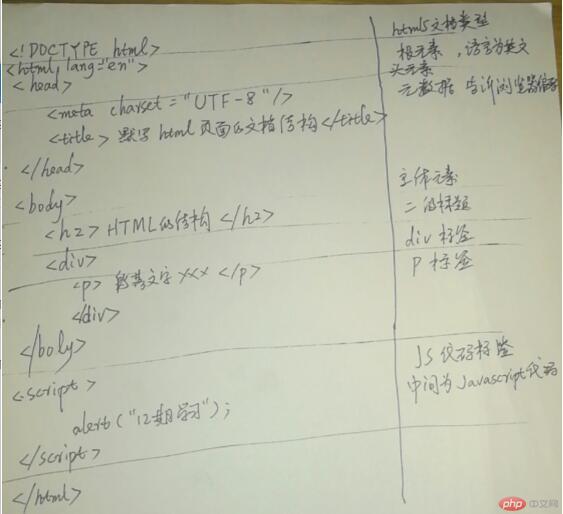 <!DOCTYPE html> html5文档类型
<html lang="en"> 根元素,语言为英文
<head> 头元素
<meta charset="UTF-8"/> 元数据 告诉浏览器编码
<title>默写html页面的文档结构</title>
</head>
<body> 主体元素
<h2>HTML的结构</h2> 二的标题
<div> div标签
<p> 文字xxx</p> P标签
</div>
</body>
<script> JS代码标签
中间为Javascript代码
alert("12期学习");
</script>
</html>
php 中文网